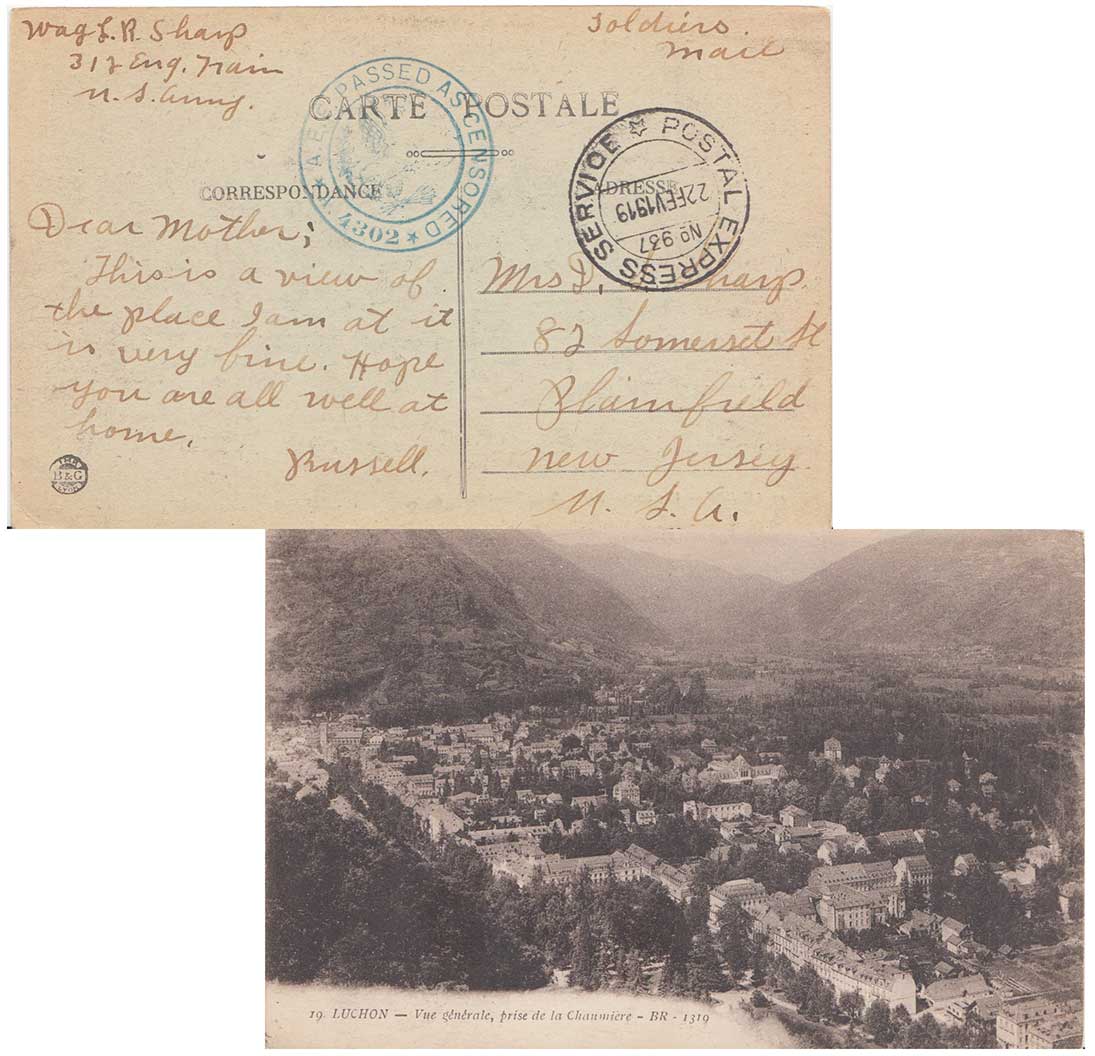 Wag L. R. Sharp
312 Eng. Train
U. S. Army.
Soldiers
Mail
A.E.F. PASSED AS CENSORED
4302
CARTE POSTALE
POSTAL EXPRESS SERVICE
22 FEV 1919
No 937
CORRESPONDANCE
ADRESSE
Dear Mother;
This is a view of
the place I am at it
is very fine. Hope
you are all well at
home.
Russell.
Mrs D. Sharp.
82 Somerset St
Plainfield
New Jersey
U. S. A.
IMP
B & G
LYON
19 LUCHON — Vue générale, prise de la Chaumière - BR - 1319